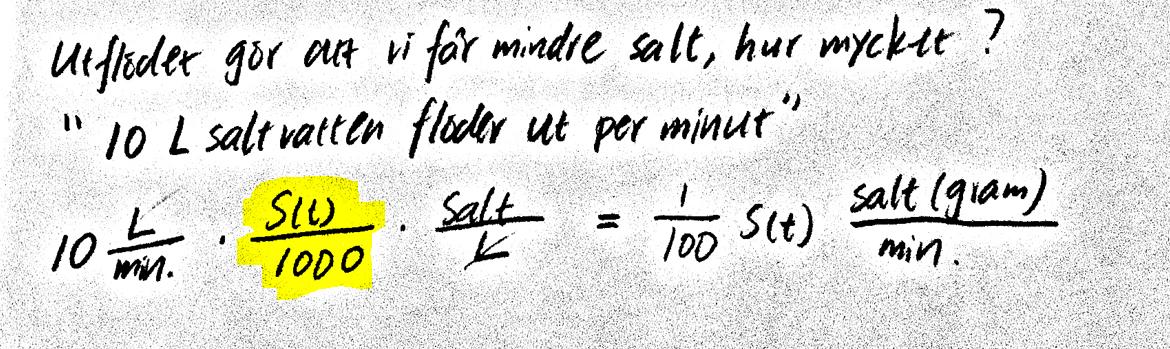 Utflödet gör att vi får mindre salt, hur mycket ?
" 10 L saltvatten flöder ut per minut"
10 L/min. · S(t)/1000 · Salt/L = 1/100 S(t) salt (gram)/min.